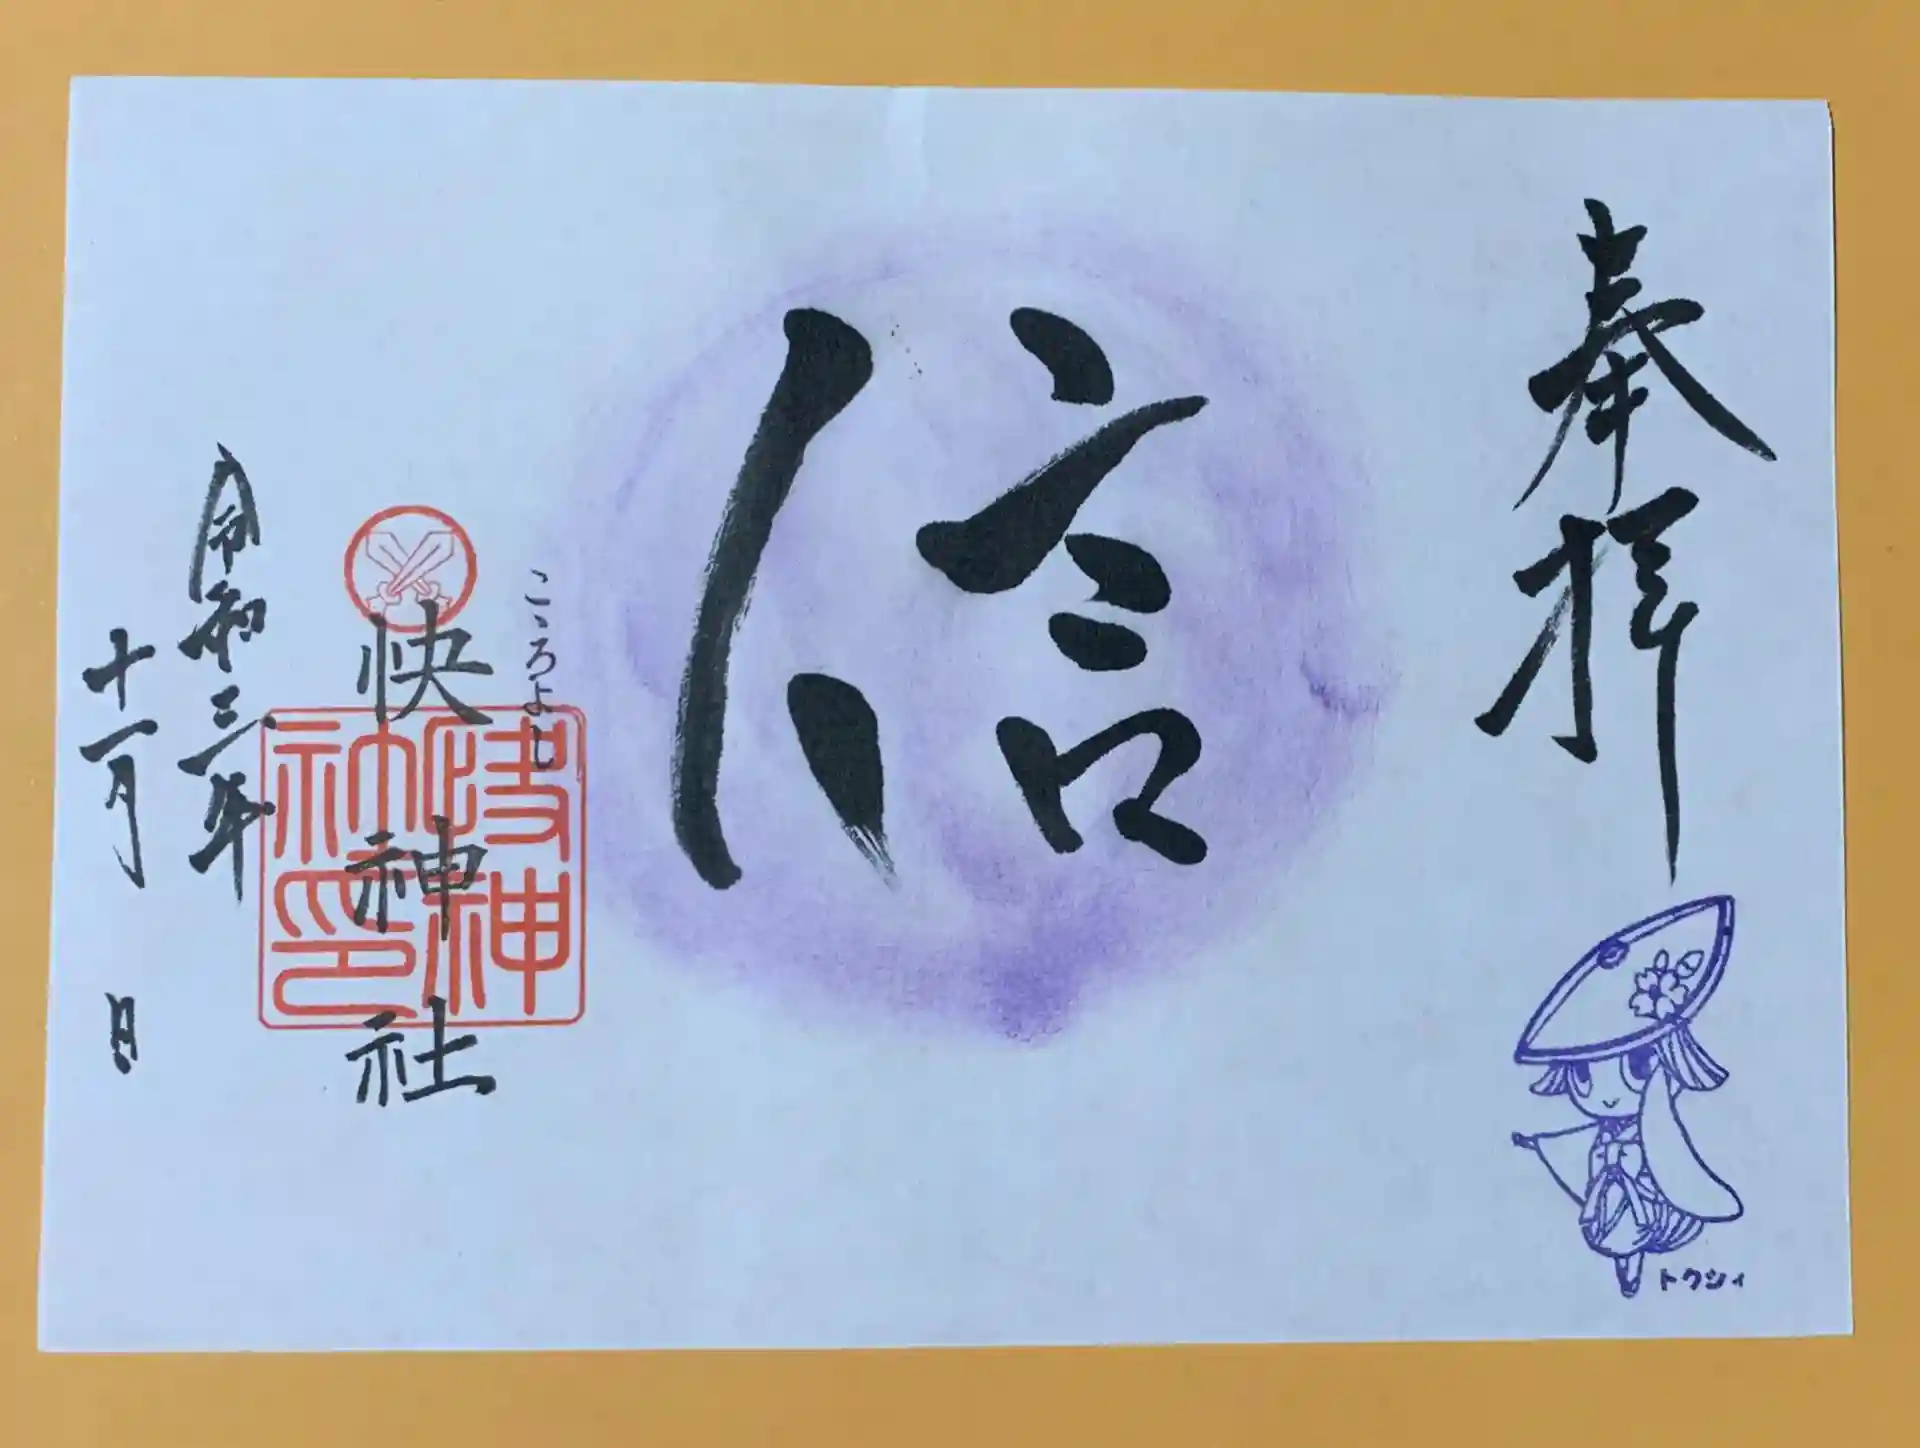 奉拝
信
こゝろよし
快神社
快神社印
令和三年
十一月 日
トクシィ